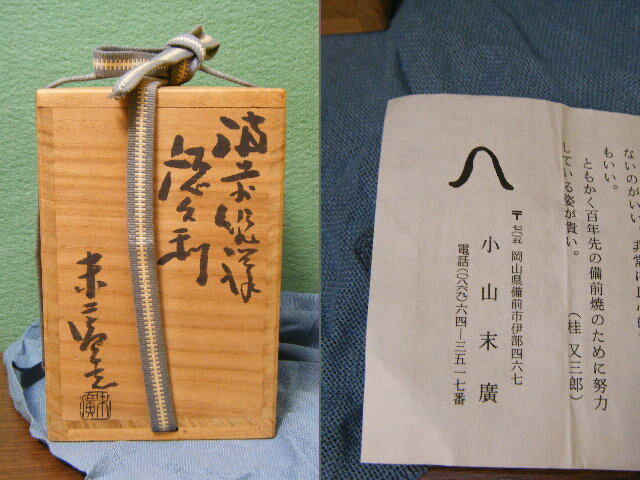 備前緋襷
德久利
末廣造
末廣
ないのがいい。
もいい。
ともかく百年先の備前焼のために努力
している姿が貴い。
（桂 又三郎）
〒七〇五 岡山県備前市伊部四六七
小山末廣
電話（〇八六九）六四ー三五一七番